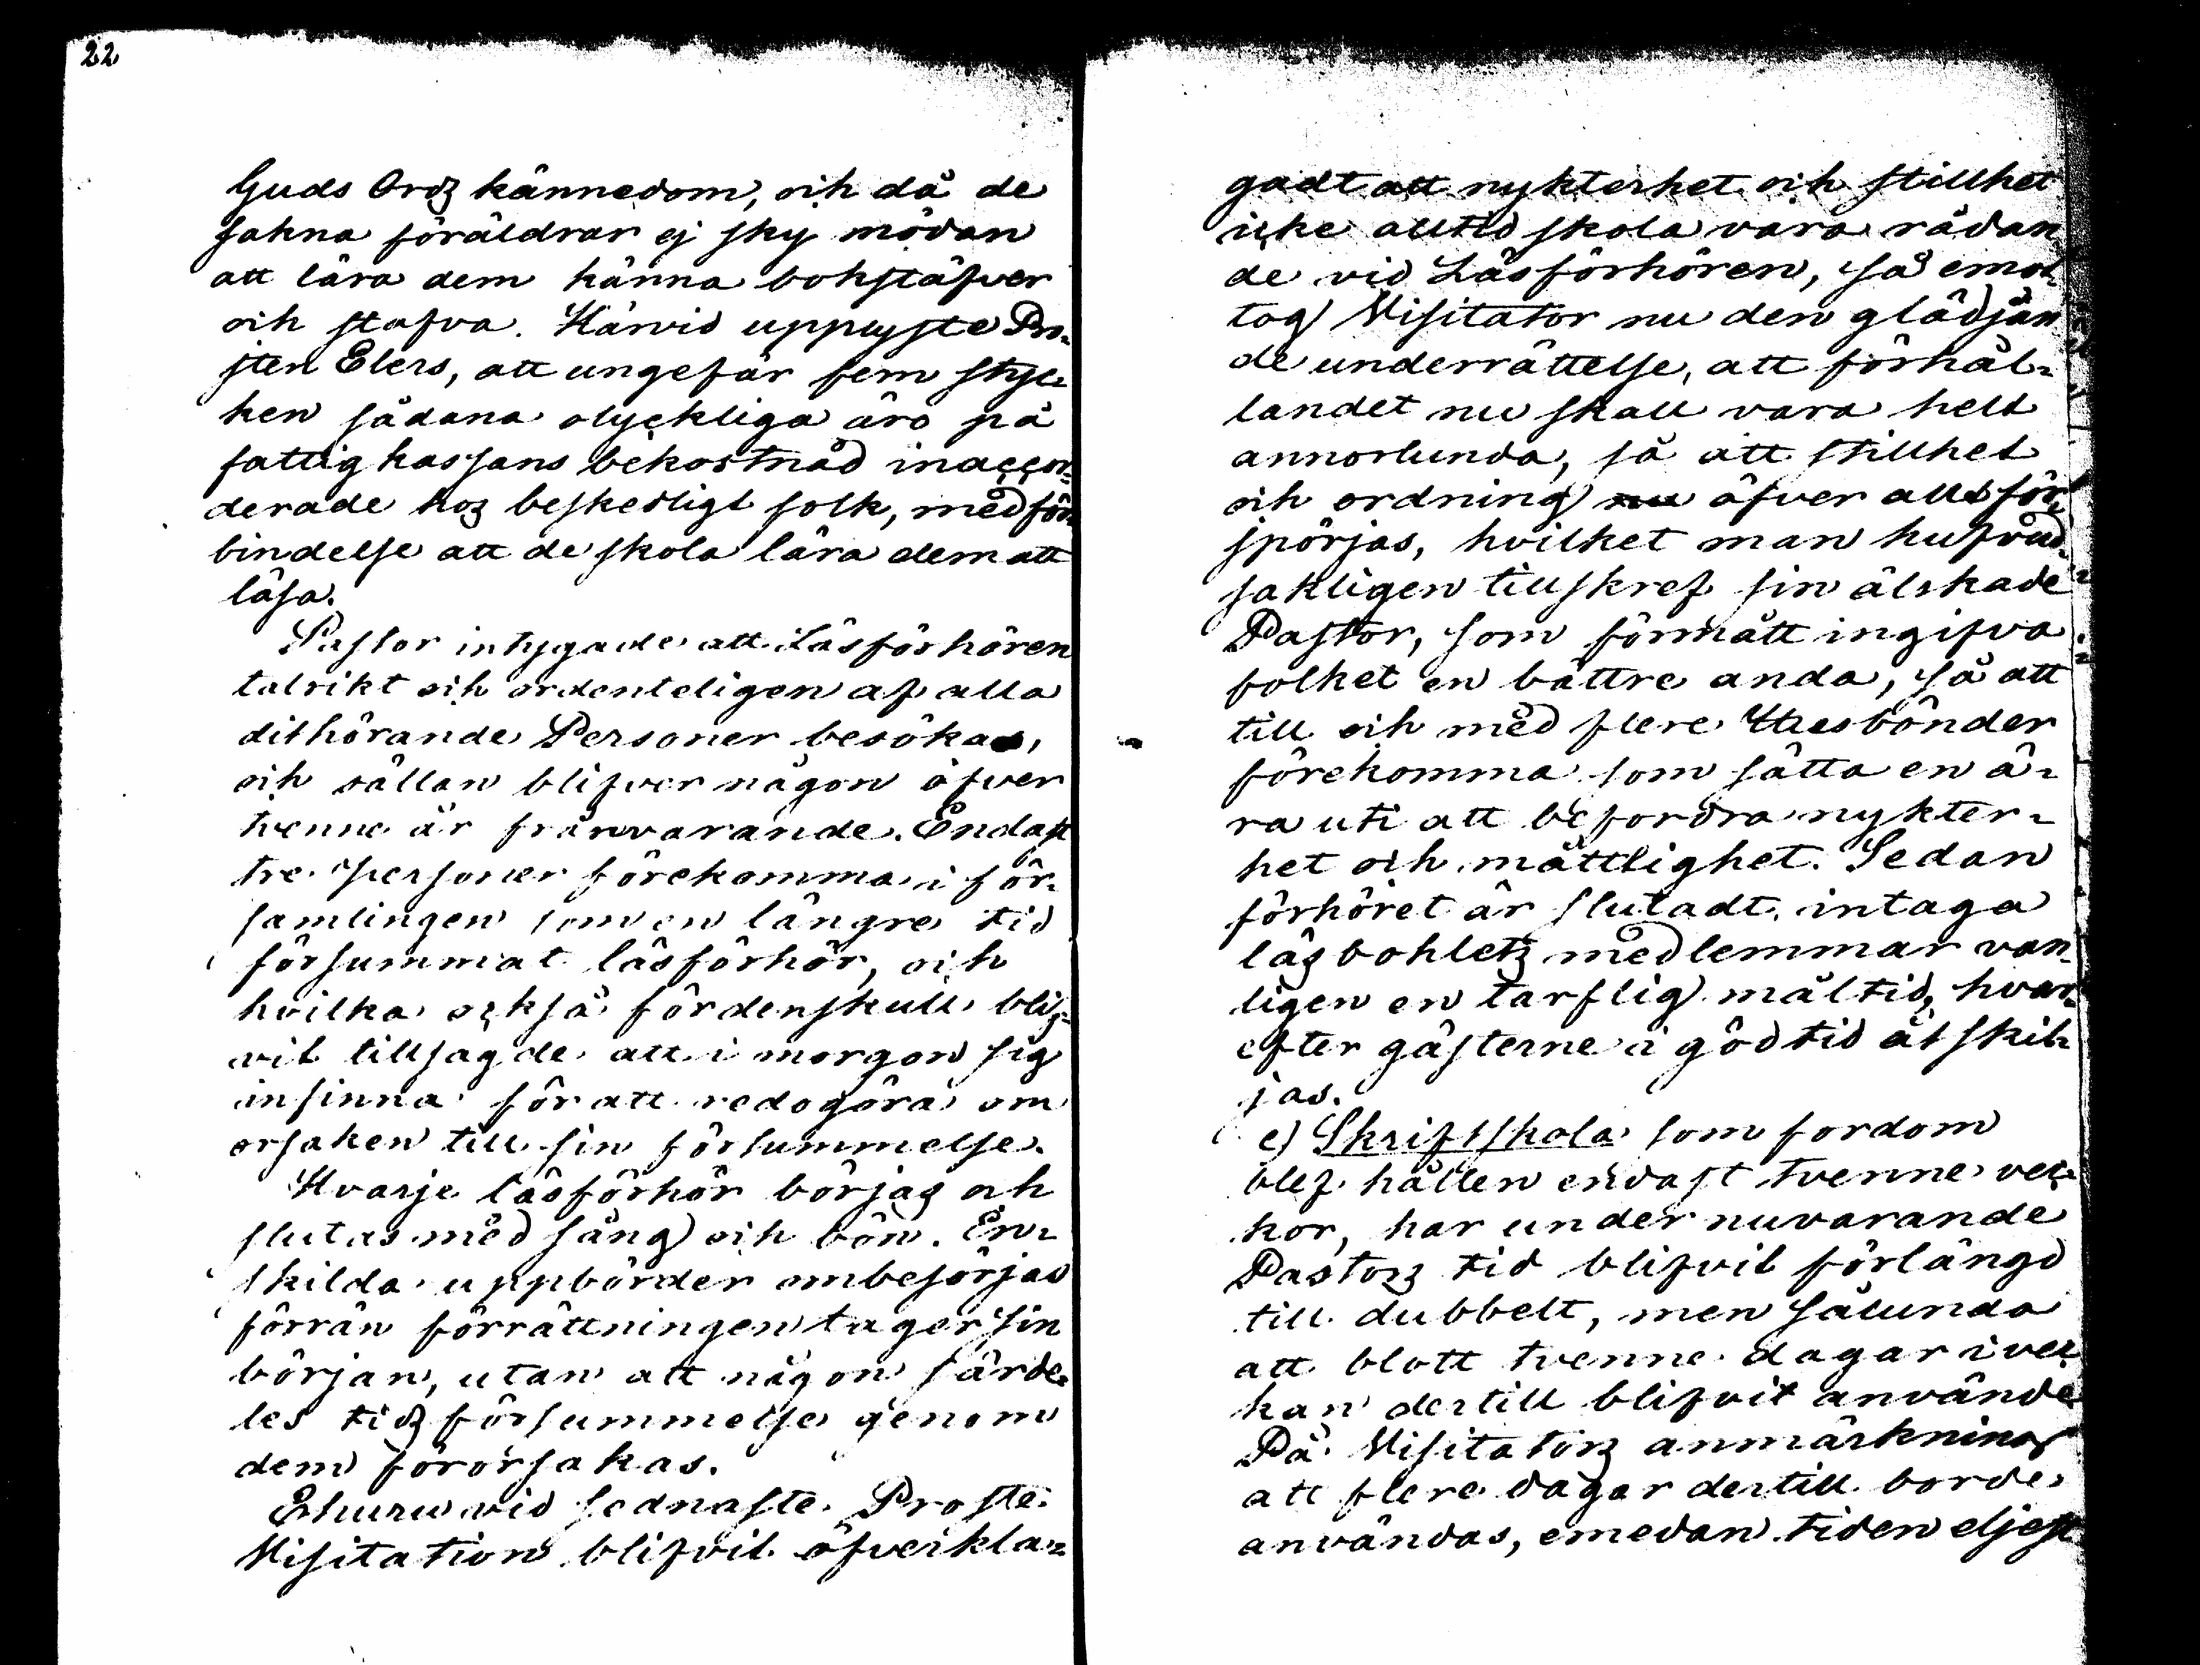 22
Guds Ords kännedom, och då de
sakna föräldrar ej sky mödan
att lära dem känna bokstäfver
och stafva. Härvid upplyste Pro-
sten Elers, att ungefär fem styc-
ken sådana olyckliga äro på
fattigkassans bekostnad inaccor-
derade hos beskedligt folk, med för-
bindelse att de skola lära dem att
läsa.
Pastor intygade att Läsförhören
talrikt och ordenteligen af alla
dithörande Personer besökas,
och sällan blifver någon öfver
tvenne år frånvarande. Endast
tre personer förekomma i för-
samlingen som en längre tid
försummat läsförhör, och
hvilka också fördenskull blif-
vit tillsagde att i morgon sig
infinna för att redogöra om
orsaken till sin försummelse.
Hvarje läsförhör börjas och
slutas med sång och bön. En-
skilda uppbörder ombesörjas
förrän förrättningen tager sin
början, utan att någon särde-
les tids försummelse genom
dem förorsakas.
Ehuru vid sednaste Proste-
Visitation blifvit öfverkla-
gadt att nykterhet och stillhet
icke alltid skola vara rådan
de vid Läsförhören, så emot-
tog Visitator nu den glädjan
de underrättelse, att förhål-
landet nu skall vara helt
annorlunda, så att stillhet
och ordning nu öfver allt för-
spörjas, hvilket man hufvud-
sakligen tillskref sin älskade
Pastor, som förmått ingifva
folket en bättre anda, så att
till och med flere Husbönder
förekomma som sätta en ä-
ra uti att befordra nykter-
het och måttlighet. Sedan
förhöret är slutadt, intaga
läsbohlets medlemmar van-
ligen en tarflig måltid, hvar-
efter gästerne i god tid åtskil-
jas.
e) Skriftskola som fordom
blef hållen endast tvenne vec-
kor, har under nuvarande
Pastors tid blifvit förlängd
till dubbelt, men sålunda
att blott tvenne dagar i vec-
kan dertill blifvit använde
På Visitators anmärkning
att flere dagar dertill borde
användas, emedan tiden eljest